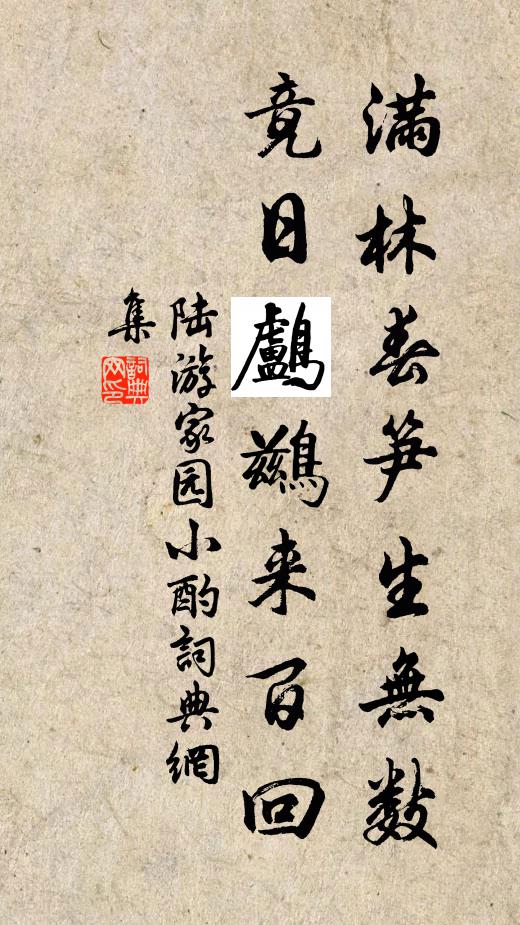 滿林春笋生無数
竟日鸕鷀来百回
陆游家园小酌詞典網
集
詞典网印